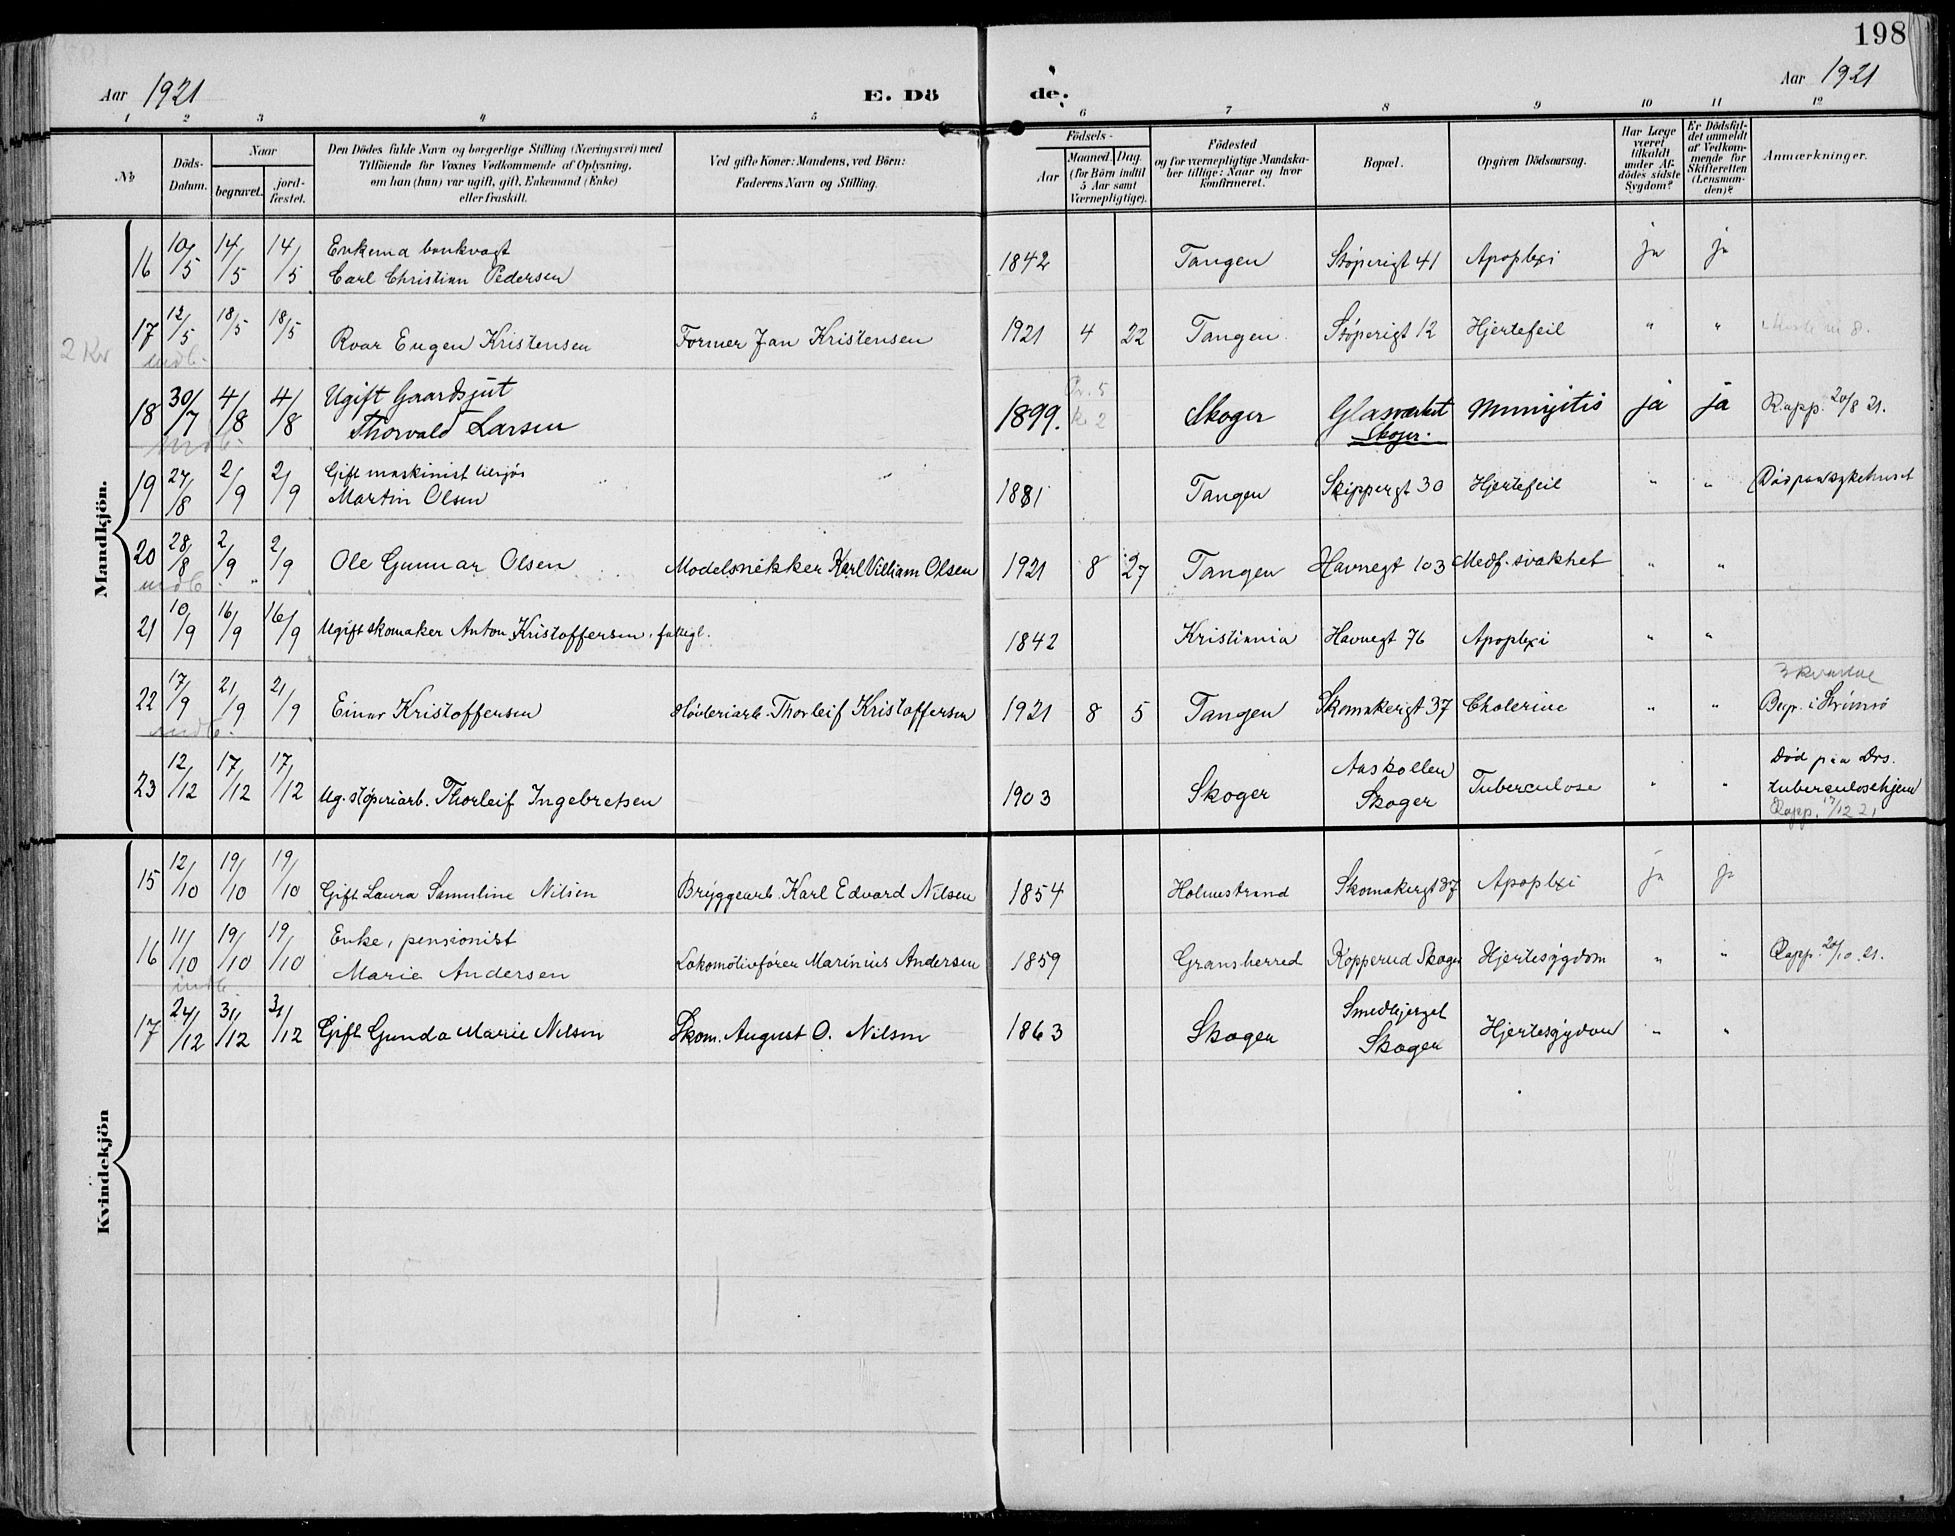 198
Aar 1921
E. Dö
de.
Aar 1921
1 2 3 4 5 6 7 8 9 10 11 12
No
Döds-Datum.
Naar
begravet.
jord-fæstet.
Den Dödes fulde Navn og borgerlige Stilling (Næringsvei) med
Tilföiende for Voxnes Vedkommende af Oplysning,
om han (hun) var ugift, gift, Enkemand (Enke)
eller fraskilt.
Ved gifte Koner: Mandens, ved Börn:
Faderens Navn og Stilling.
Födsels-
Aar
Maaned. Dag.
(for Börn indtil
5 Aar samt
Værnepligtige).
Födested
og for værnepligtige Mandska-
ber tillige: Naar og hvor
konfirmeret.
Bopæl.
Opgiven Dödsaarsag.
Har Læge
været
tilkaldt
under Af-
dödes sidste
Sygdom?
Er Dödsfal-
det anmeldt
af Vedkom-
mende for
Skifteretten
(Lensman-
den)?
Anmærkninger.
Mandkjön.
16 10/5 14/5 14/5 Enkemd bankvagt
Carl Christian Pedersen 1842 Tangen Støperigt 41 Apoplexi ja ja
2 Kv
17 12/5 18/5 18/5 Roar Eugen Kristensen Former Jan Kristensen 1921 4 22 Tangen Støperigt 12 Hjertefeil " "
indb.
18 30/7 4/8 4/8 Ugift Gaardsgut
Thorvald Larsen 1899. Skoger Glasværket
Skoger. ja ja Rapp. 20/8 21.
indb.
19 27/8 2/9 2/9 Gift maskinist tilsjøs
Martin Olsen 1881 Tangen Skippergt 30 Hjertefeil " " Død paa sykehuset
20 28/8 2/9 2/9 Ole Gunnar Olsen Modelsnekker Karl Villiam Olsen 1921 8 27 Tangen Havnegt 103 Medf. svakhet " "
indb
21 10/9 16/9 16/9 Ugift skomaker Anton Kristoffersen, fattigl. 1842 Kristiania Havnegt 76 Apoplexi " "
22 17/9 21/9 21/9 Einar Kristoffersen Høvleriarb. Thorleif Kristoffersen 1921 8 5 Tangen Skomakergt 37 Cholerine " " Begr. i Strømsø
indb.
23 12/12 17/12 17/12 Ug. støperiarb. Thorleif Ingebretsen 1903 Skoger Aaskollen
Skoger Tuberculose " " Død paa Drs.
tuberculosehjem
Rapp. 17/12 21
Kvindekjön
15 12/10 19/10 19/10 Gift Laura Samuline Nilsen Bryggearb. Karl Edvard Nilsen 1854 Holmestrand Skomakergt 37 Apoplexi ja ja
16 11/10 19/10 19/10 Enke, pensionist
Marie Andersen Lokomotivfører Marinius Andersen 1859 Gransherred Kopperud Skoger Hjertesygdom " " Rapp. 20/10 21.
indb
17 24/12 31/12 31/12 Gift Gunda Marie Nilsen Skom. August O. Nilsen 1863 Skoger Smedbjerget
Skoger Hjertesygdom " "